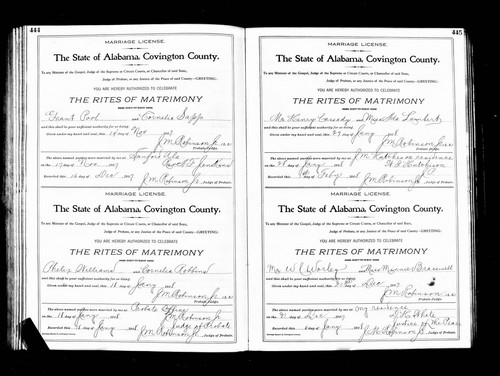 444
MARRIAGE LICENSE.
The State of Alabama, Covington County.
To any Minister of the Gospel, Judge of the Supreme or Circuit Courts, or Chancellor of said State,
Judge of Probate, or any Justice of the Peace of said County,—GREETING:
YOU ARE HEREBY AUTHORIZED TO CELEBRATE
THE RITES OF MATRIMONY
Grant Pool and Cornelia Sapp
and this shall be your sufficient authority for so doing.
Given under my hand and seal, this day of Nov
J.M. Robinson
Probate Judge.
The above named parties were married by me at Sanford Ala
on the 17 day Nov 1907
Recorded this 16 day of Dec 1907 J.M. Robinson Jr, Judge of Probate.
MARRIAGE LICENSE.
The State of Alabama, Covington County.
To any Minister of the Gospel, Judge of the Supreme or Circuit Courts, or Chancellor of said State,
Judge of Probate, or any Justice of the Peace of said County,—GREETING:
YOU ARE HEREBY AUTHORIZED TO CELEBRATE
THE RITES OF MATRIMONY
Williams and Cornelia Robbins
and this shall be your sufficient authority for so doing.
Given under my hand and seal, this 18 day of Jany 1908
J.M. Robinson Jr
Probate Judge.
The above named parties were married by me at Probate Office
on the 18 day Jany 1908 J.M. Robinson Jr
Judge of Probate
Recorded this 18 day of Jany 1908 J.M. Robinson Jr, Judge of Probate.
445
MARRIAGE LICENSE.
The State of Alabama, Covington County.
To any Minister of the Gospel, Judge of the Supreme or Circuit Courts, or Chancellor of said State,
Judge of Probate, or any Justice of the Peace of said County,—GREETING:
YOU ARE HEREBY AUTHORIZED TO CELEBRATE
THE RITES OF MATRIMONY
Mr Henry and Miss Ida
and this shall be your sufficient authority for so doing.
Given under my hand and seal, this 27 day of Jany 1908
J.M. Robinson
Probate Judge.
The above named parties were married by me at residence
on the day Jany 1908
Recorded this day of Feby 1908 J.M. Robinson Jr, Judge of Probate.
MARRIAGE LICENSE.
The State of Alabama, Covington County.
To any Minister of the Gospel, Judge of the Supreme or Circuit Courts, or Chancellor of said State,
Judge of Probate, or any Justice of the Peace of said County,—GREETING:
YOU ARE HEREBY AUTHORIZED TO CELEBRATE
THE RITES OF MATRIMONY
Mr W and Miss Minnie
and this shall be your sufficient authority for so doing.
Given under my hand and seal, this day of Dec
J.M. Robinson
Probate Judge.
The above named parties were married by me at my residence
on the day Dec 1907
Justice of the Peace
Recorded this 8 day of Jany 1908 J.M. Robinson Jr, Judge of Probate.